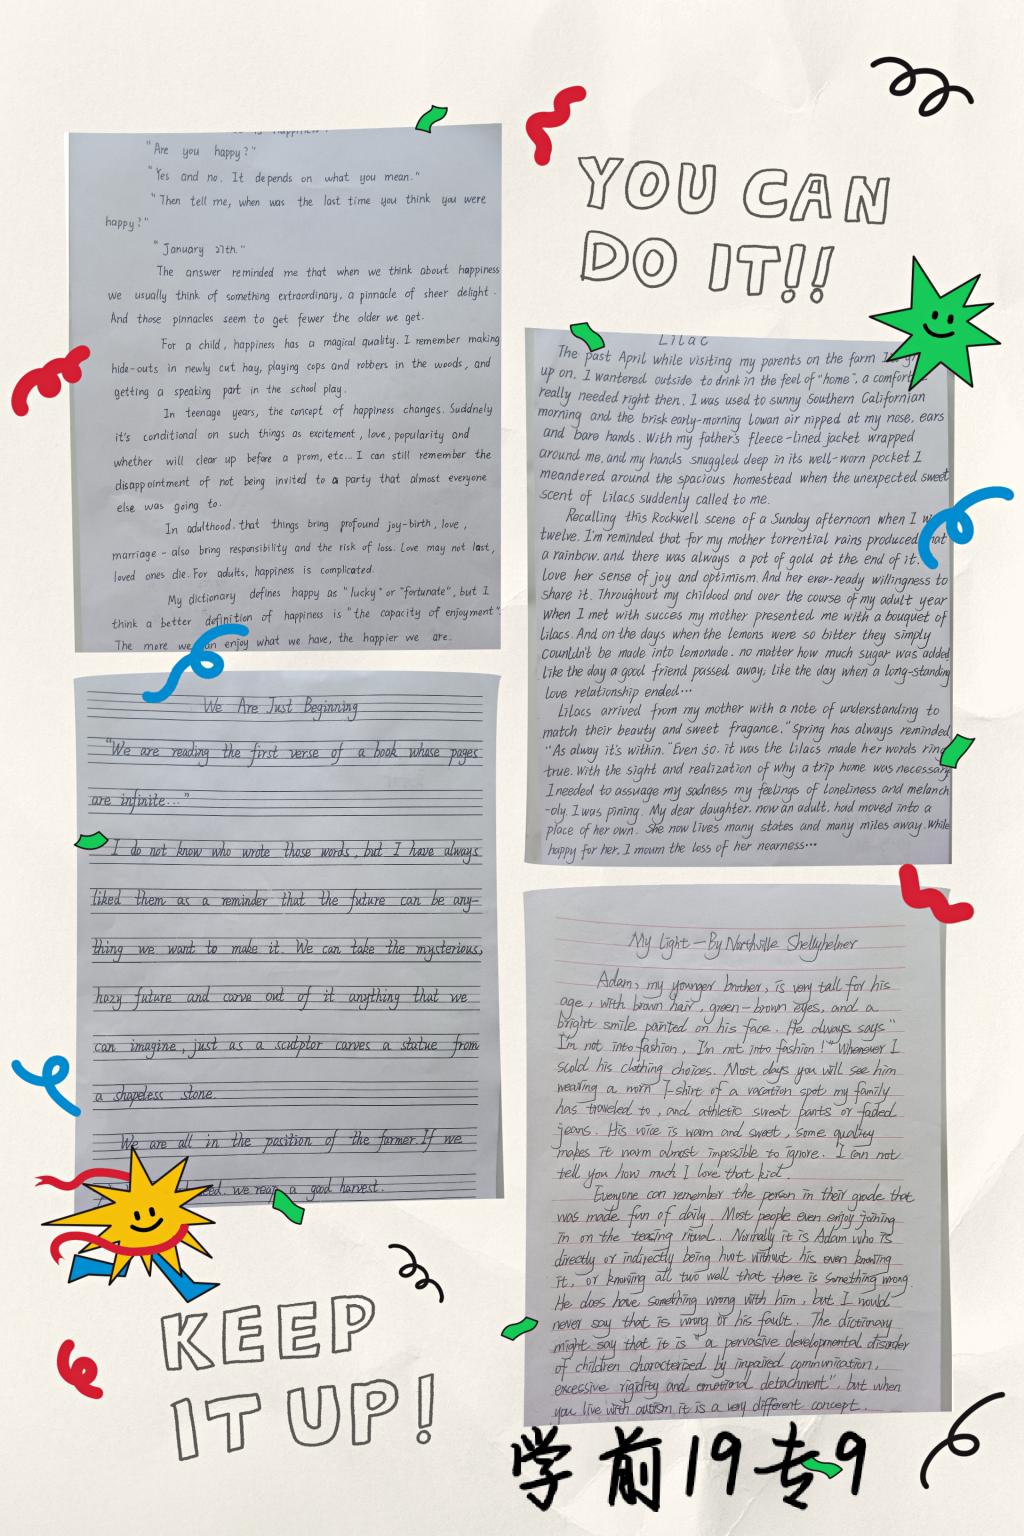 "Are you happy?"
"Yes and no. It depends on what you mean."
"Then tell me, when was the last time you think you were
happy?"
"January 27th."
The answer reminded me that when we think about happiness
we usually think of something extraordinary, a pinnacle of sheer delight.
And those pinnacles seem to get fewer the older we get.
For a child, happiness has a magical quality. I remember making
hide-outs in newly cut hay, playing cops and robbers in the woods, and
getting a speaking part in the school play.
In teenage years, the concept of happiness changes. Suddenly
it's conditional on such things as excitement, love, popularity and
whether will clear up before a prom, etc... I can still remember the
disappointment of not being invited to a party that almost everyone
else was going to.
In adulthood. that things bring profound joy-birth, love,
marriage - also bring responsibility and the risk of loss. Love may not last,
loved ones die. For adults, happiness is complicated.
My dictionary defines happy as "lucky" or "fortunate", but I
think a better definition of happiness is "the capacity of enjoyment".
The more we can enjoy what we have, the happier we are.
YOU CAN
DO IT!!
Lilac
The past April while visiting my parents on the farm
up on. I wantered outside to drink in the feel of "home", a comfort
really needed right then. I was used to sunny Southern Californian
morning and the brisk early-morning Lowan air nipped at my nose, ears
and bare hands. With my father's fleece-lined jacket wrapped
around me, and my hands snuggled deep in its well-worn pocket I
meandered around the spacious homestead when the unexpected sweet
scent of Lilacs suddenly called to me.
Recalling this Rockwell scene of a Sunday afternoon when I
twelve. I'm reminded that for my mother torrential rains produced
a rainbow. and there was always a pot of gold at the end of it.
love her sense of joy and optimism. And her ever-ready willingness to
share it. Throughout my childood and over the course of my adult year
when I met with succes my mother presented me with a bouquet of
lilacs. And on the days when the lemons were so bitter they simply
couldn't be made into lemonade. no matter how much sugar was added
like the day a good friend passed away; like the day when a long-standing
love relationship ended...
Lilacs arrived from my mother with a note of understanding to
match their beauty and sweet fragance. "Spring has always reminded
"As alway it's within." Even so. it was the Lilacs made her words ring
true. With the sight and realization of why a trip home was necessary
I needed to assuage my sadness my feelings of loneliness and melanch
-oly. I was pining. My dear daughter. now an adult. had moved into a
place of her own. She now lives many states and many miles away. While
happy for her. I mourn the loss of her nearness...
We Are Just Beginning
"We are reading the first verse of a book whose pages
are infinite..."
I do not know who wrote those words, but I have always
liked them as a reminder that the future can be any-
thing we want to make it. We can take the mysterious,
hazy future and carve out of it anything that we
can imagine, just as a sculptor carves a statue from
a shapeless stone.
We are all in the position of the farmer. If we
seed. we reap a good harvest.
My Light - By Northville Shellyhelner
Adam, my younger brother, is very tall for his
age, with brown hair, green-brown eyes, and a
bright smile painted on his face. He always says "
I'm not into fashion, I'm not into fashion!" Whenever I
scold his clothing choices. Most days you will see him
wearing a worn T-shirt of a vacation spot my family
has traveled to, and athletic sweat pants or faded
jeans. His voice is warm and sweet, some quality
makes it warm almost impossible to ignore. I can not
tell you how much I love that kid.
Everyone can remember the person in their grade that
was made fun of daily. Most people even enjoy joining
in on the teasing ritual. Normally it is Adam who is
directly or indirectly being hurt without his even knowing
it, or knowing all two well that there is something wrong.
He does have something wrong with him, but I would
never say that is wrong or his fault. The dictionary
might say that it is "a pervasive developmental disorder
of children characterized by impaired communication,
excessive rigidity and emotional detachment", but when
you live with autism it is a very different concept.
KEEP
IT UP!
学前19专9